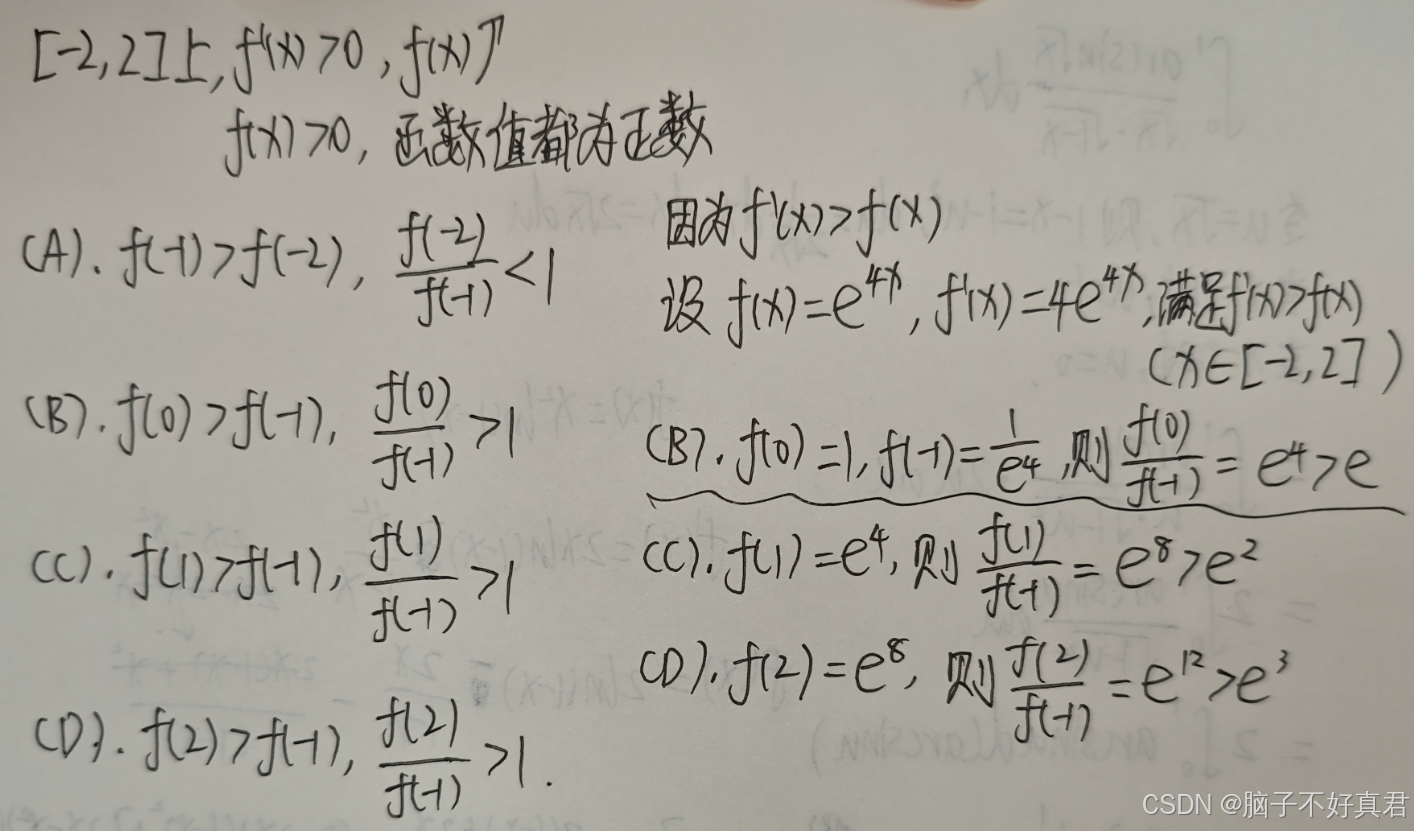 [-2,2]上,f'(x)>0,f(x)↗
f(x)>0,函数值都为正数
(A).f(-1)>f(-2),f(-2)/f(-1)<1
(B).f(0)>f(-1),f(0)/f(-1)>1
(C).f(1)>f(-1),f(1)/f(-1)>1
(D).f(2)>f(-1),f(2)/f(-1)>1.
因为f'(x)>f(x)
设f(x)=e^{4x},f'(x)=4e^{4x},满足f'(x)>f(x)
(x∈[-2,2])
(B).f(0)=1,f(-1)=1/e^4,则f(0)/f(-1)=e^4>e
(C).f(1)=e^4,则f(1)/f(-1)=e^8>e^2
(D).f(2)=e^8,则f(2)/f(-1)=e^{12}>e^3
CSDN @脑子不好真君